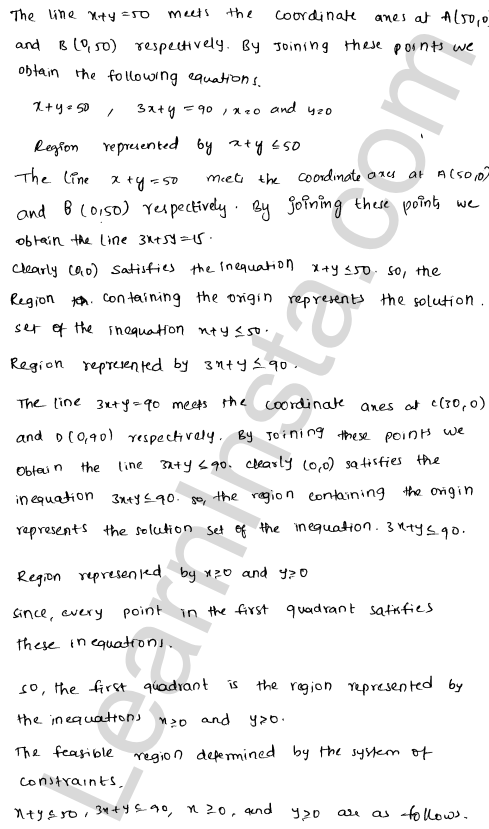 The line x+y=50 meets the coordinate axes at A(50,0
and B(0,50) respectively. By Joining these points we
obtain the following equations.
x+y=50, 3x+y=90, x=0 and y=0
Region represented by x+y≤50
The line x+y=50 meets the coordinate axes at A(50,0)
and B(0,50) respectively. By joining these points we
obtain the line 3x+5y=15.
Clearly (0,0) satisfies the inequation x+y≤50. So, the
Region containing the origin represents the solution.
set of the inequation x+y≤50.
Region represented by 3x+y≤90.
The line 3x+y=90 meets the coordinate axes at C(30,0)
and D(0,90) respectively. By Joining these points we
obtain the line 3x+y≤90. clearly (0,0) satisfies the
inequation 3x+y≤90. so, the region containing the origin
represents the solution set of the inequation. 3x+y≤90.
Region represented by x≥0 and y≥0
since, every point in the first quadrant satisfies
these inequations.
so, the first quadrant is the region represented by
the inequations x≥0 and y≥0.
The feasible region determined by the system of
constraints.
x+y≤50, 3x+y≤90, x≥0, and y≥0 are as follows.
LearnInsta.com